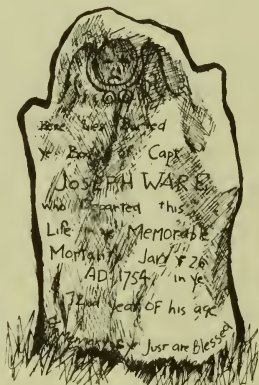 Here lies buried
ye Body Capt
JOSEPH WARE
who Departed this
Life ye Memorable
Jany ye 26
AD 1754 in ye
72nd year of his age
Just are Blessed